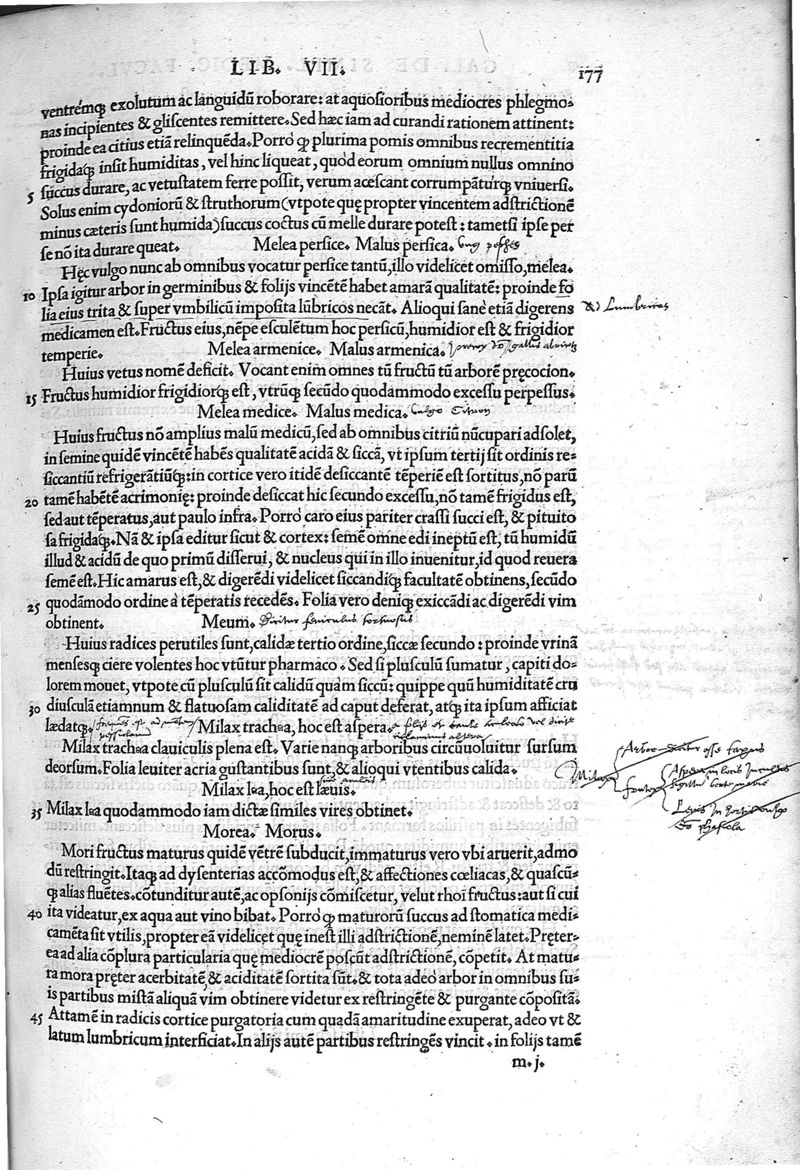 LIB. VII. 177
ventrémq̃ exolutum ac languidũ roborare: at aquosioribus mediocres phlegmo-
nas incipientes & gliscentes remittere. Sed hæc iam ad curandi rationem attinent:
proinde ea citius etiã relinquẽda. Porrò q̃ plurima pomis omnibus recrementitia
frigidaq̃ insit humiditas, vel hinc liqueat, quòd eorum omnium nullus omnino
5 succus durare, ac vetustatem ferre possit, verum acescant corrumpãturq̃ vniuersi.
Solus enim cydoniorũ & struthorum (vtpote quę propter vincentem adstrictionẽ
minus cæteris sunt humida) succus coctus cũ melle durare potest: tametsi ipse per
se nõ ita durare queat. Melea persice. Malus persica.
Hęc vulgo nunc ab omnibus vocatur persice tantũ, illo videlicet omisso, melea.
10 Ipsa igitur arbor in germinibus & folijs vincẽtẽ habet amarã qualitatẽ: proinde fo
lia eius trita & super vmbilicũ imposita lũbricos necãt. Alioqui sanè etiã digerens
medicamen est. Fructus eius, nẽpe esculẽtum hoc persicũ, humidior est & frigidior
temperie. Melea armenice. Malus armenica.
Huius vetus nomẽ deficit. Vocant enim omnes tũ fructũ tũ arborẽ pręcocion.
15 Fructus humidior frigidiorq̃ est, vtrũq̃ secũdo quodammodo excessu perpessus.
Melea medice. Malus medica. Citron
Huius fructus nõ amplius malũ medicũ, sed ab omnibus citriũ nũcupari adsolet,
in semine quidẽ vincẽtẽ habẽs qualitatẽ acidã & siccã, vt ipsum tertij sit ordinis re-
siccantiũ refrigerãtiũq̃: in cortice vero itidẽ desiccantẽ tẽperiẽ est sortitus, nõ parũ
20 tamẽ habẽtẽ acrimonię: proinde desiccat hic secundo excessu, nõ tamẽ frigidus est,
sed aut tẽperatus, aut paulo infra. Porrò caro eius pariter crassi succi est, & pituito
sa frigidaq̃. Nã & ipsa editur sicut & cortex: semẽ omne edi ineptũ est, tũ humidũ
illud & acidũ de quo primũ disserui, & nucleus qui in illo inuenitur, id quod reuera
semẽ est. Hic amarus est, & digerẽdi videlicet siccandiq̃ facultatẽ obtinens, secũdo
25 quodãmodo ordine à tẽperatis recedẽs. Folia vero deniq̃ exiccãdi ac digerẽdi vim
obtinent. Meum.
Huius radices perutiles sunt, calidæ tertio ordine, siccæ secundo: proinde vrinã
mensesq̃ ciere volentes hoc vtũtur pharmaco. Sed si plusculũ sumatur, capiti do-
lorem mouet, vtpote cũ plusculũ sit calidũ quàm siccũ: quippe quũ humiditatẽ cru
30 diusculã etiamnum & flatuosam caliditatẽ ad caput deferat, atq̃ ita ipsum afficiat
lædatq̃. Milax trachea, hoc est aspera.
Milax trachea clauiculis plena est. Varie nanq̃ arboribus circũuoluitur sursum
deorsum. Folia leuiter acria gustantibus sunt, & alioqui vtentibus calida.
Milax lea, hoc est læuis.
35 Milax lea quodammodo iam dictæ similes vires obtinet.
Morea. Morus.
Mori fructus maturus quidẽ vẽtrẽ subducit, immaturus vero vbi aruerit, admo
dũ restringit. Itaq̃ ad dysenterias accõmodus est, & affectiones cœliacas, & quascũ-
q̃ alias fluẽtes. cõtunditur autẽ, ac opsonijs cõmiscetur, velut rhoi fructus: aut si cui
40 ita videatur, ex aqua aut vino bibat. Porrò q̃ maturorũ succus ad stomatica medi-
camẽta sit vtilis, propter eã videlicet quę inest illi adstrictionẽ, neminẽ latet. Pręter-
ea ad alia cõplura particularia quę mediocrẽ poscũt adstrictionẽ, cõpetit. At matu-
ra mora pręter acerbitatẽ & aciditatẽ sortita sũt. & tota adeò arbor in omnibus su-
is partibus mistã aliquã vim obtinere videtur ex restringẽte & purgante cõpositã.
45 Attamẽ in radicis cortice purgatoria cum quadã amaritudine exuperat, adeo vt &
latum lumbricum interficiat. In alijs autẽ partibus restringẽs vincit. in folijs tamẽ
m. j.